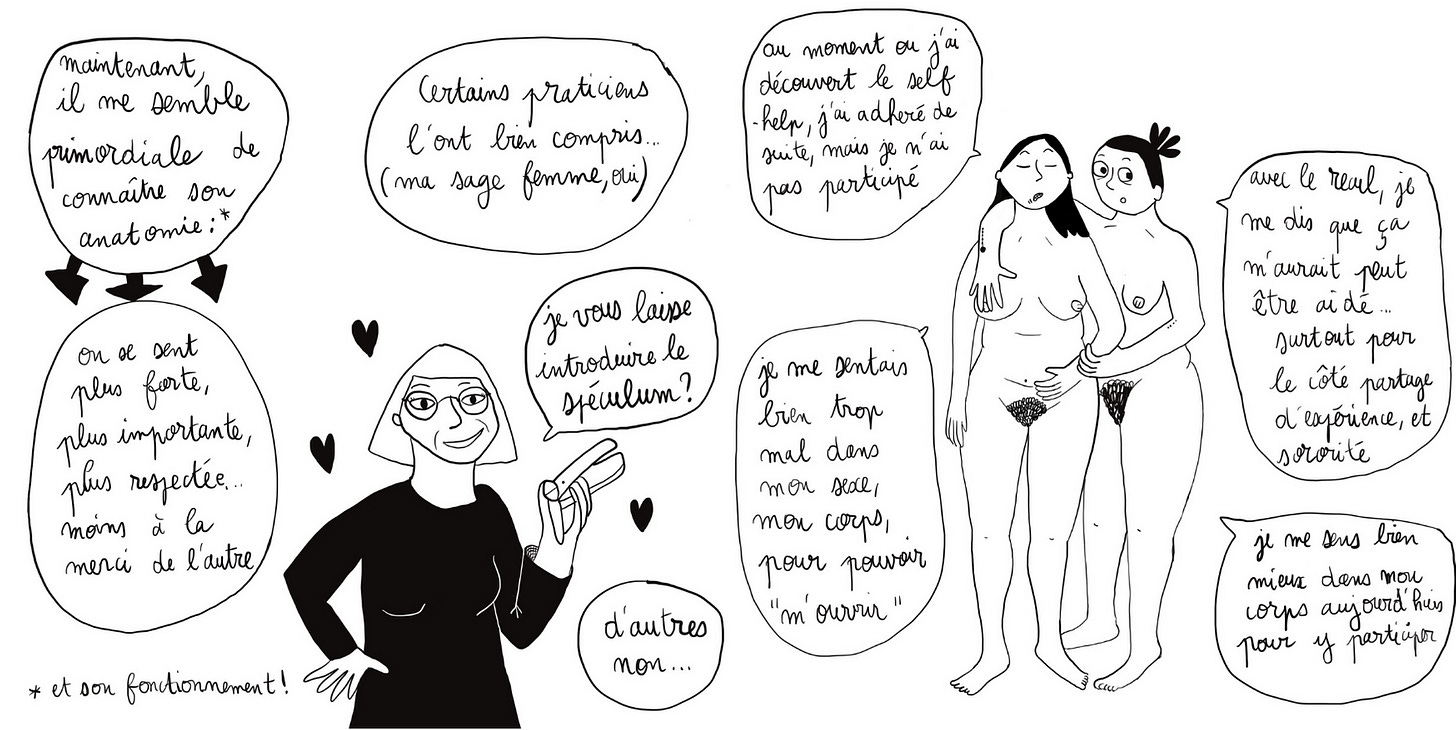 maintenant,
il me semble
primordiale de
connaître son
anatomie:*
on se sent
plus forte,
plus importante,
plus respectée...
moins à la
merci de l'autre
* et son fonctionnement!
Certains praticiens
l'ont bien compris...
(ma sage femme, oui)
je vous laisse
introduire le
spéculum?
d'autres
non...
au moment ou j'ai
découvert le self
-help, j'ai adheré de
suite, mais je n'ai
pas participé
je me sentais
bien trop
mal dans
mon sexe,
mon corps,
pour pouvoir
"m'ouvrir"
avec le recul, je
me dis que ça
m'aurait peut
être aidé...
surtout pour
le côté partage
d'expérience, et
sororité
je me sens bien
mieux dans mon
corps aujourd'huis
pour y participer